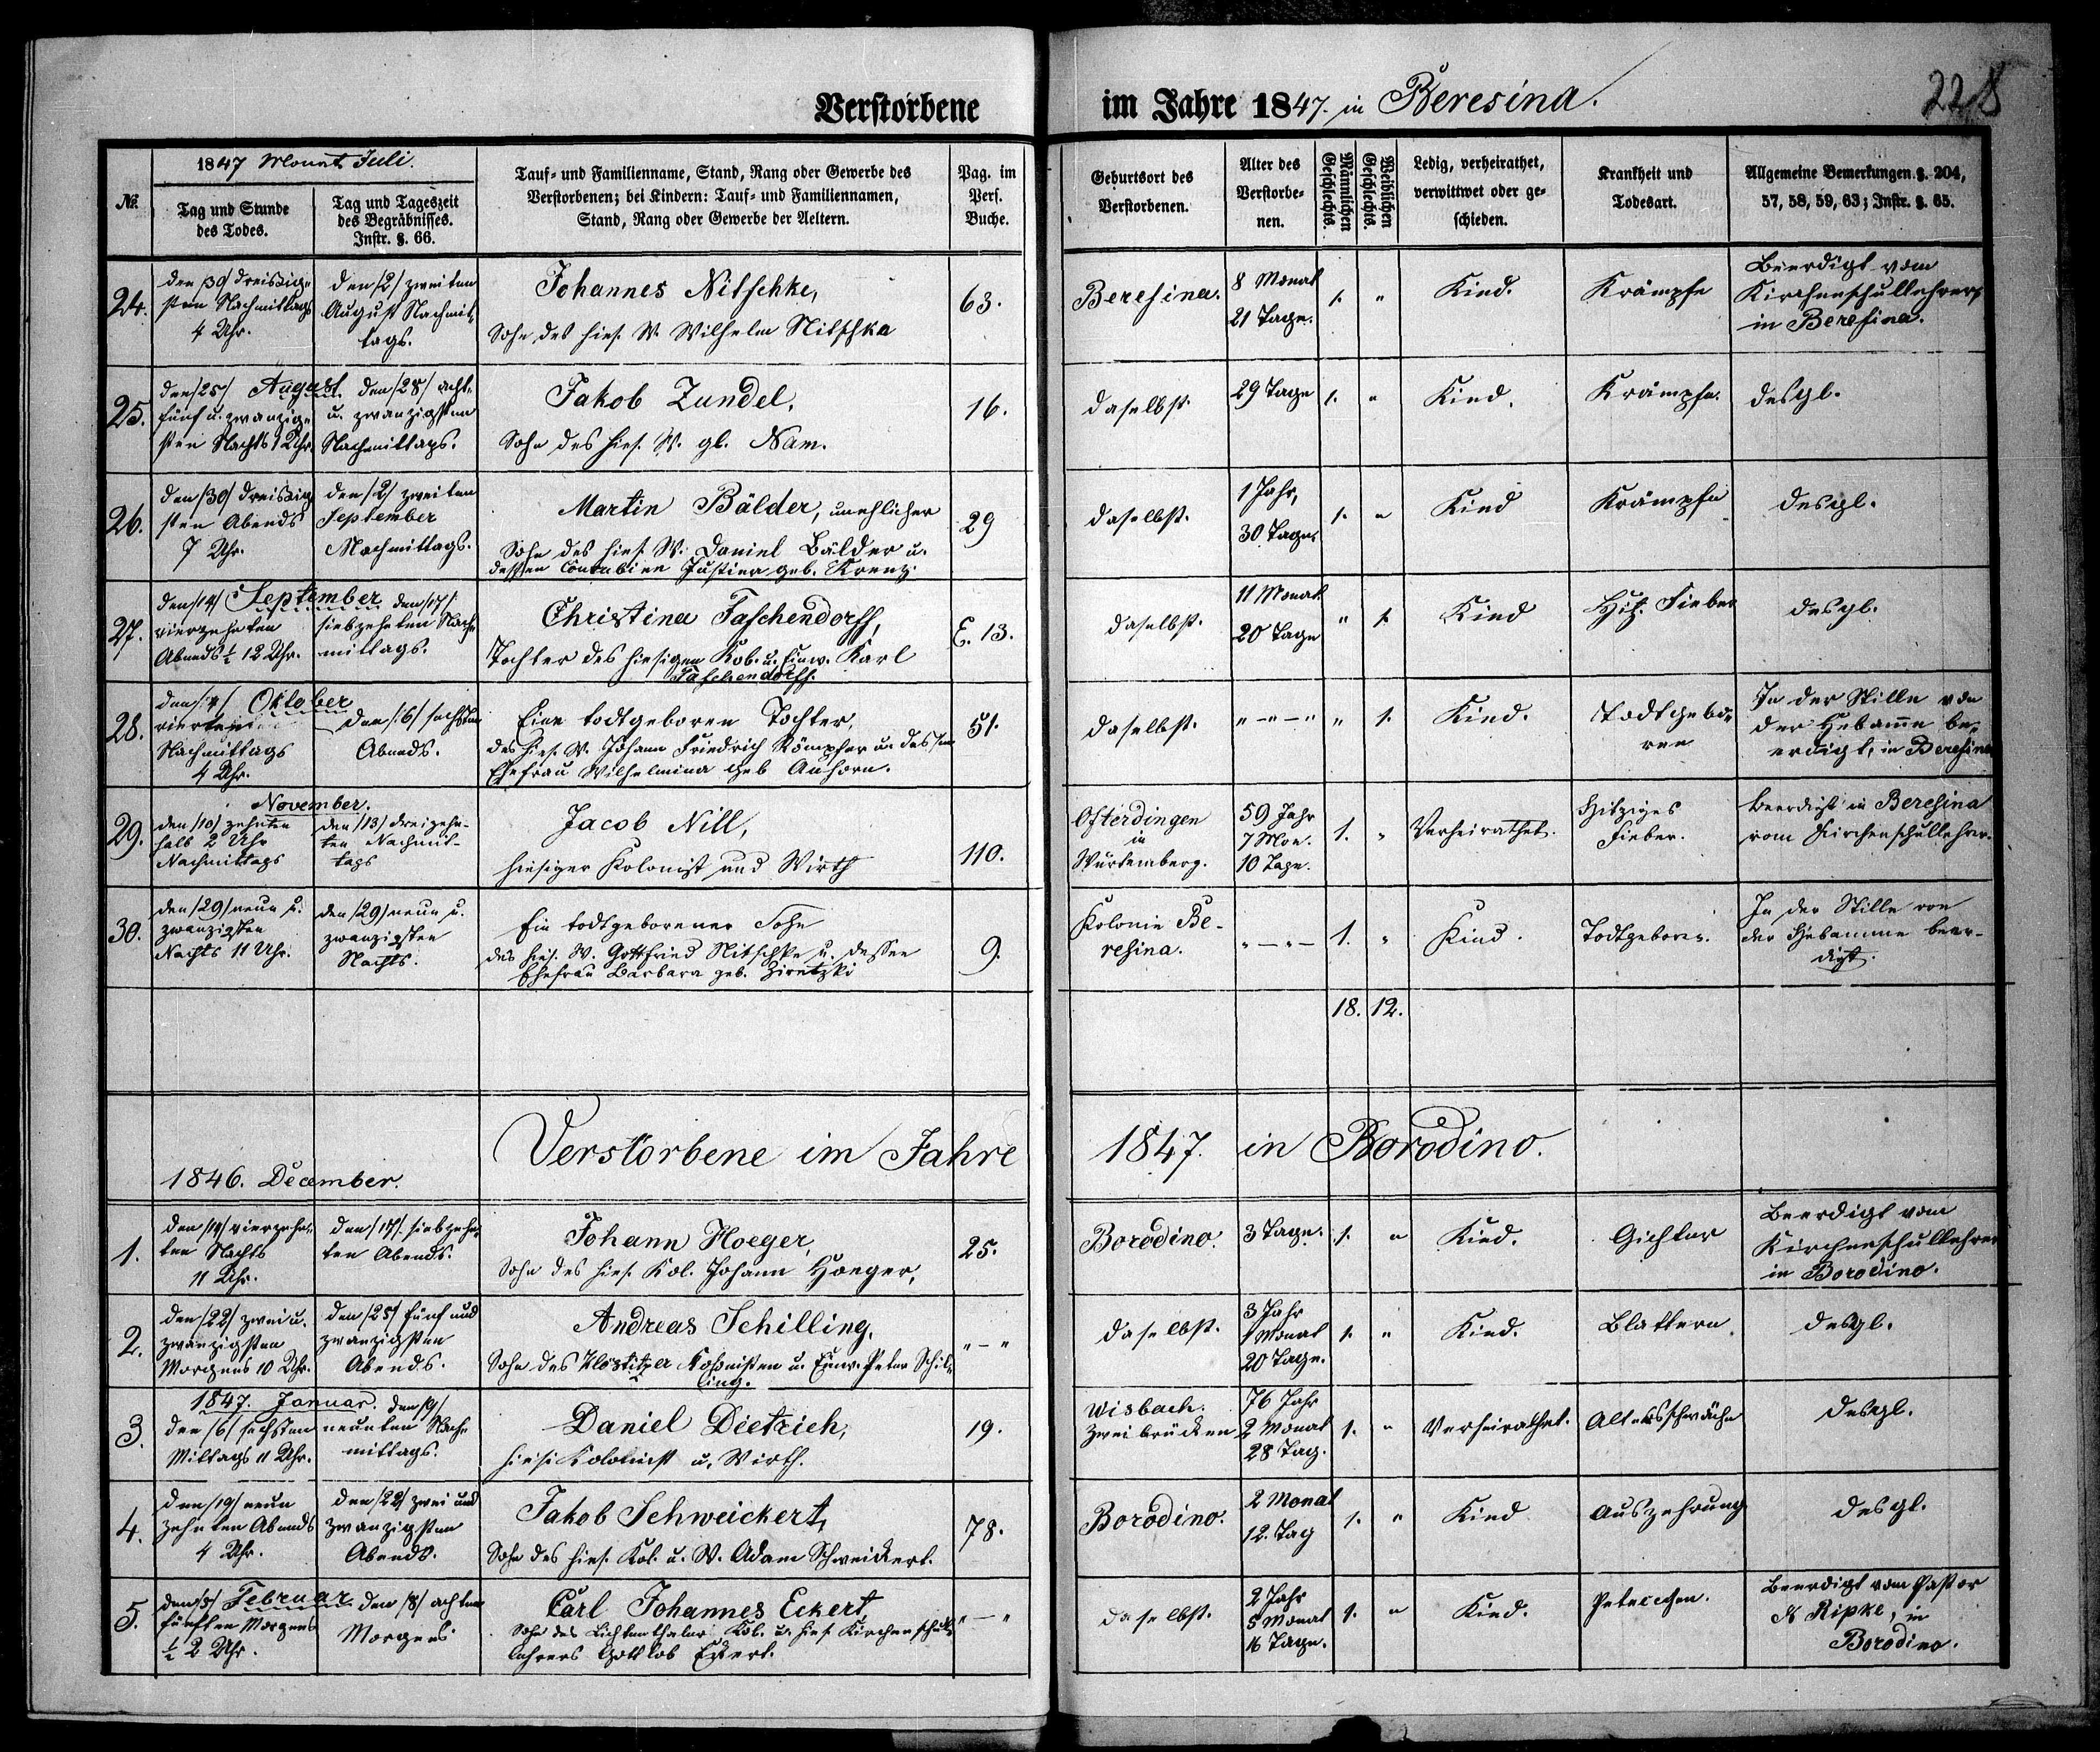 Verstorbene im Jahre 1847. in Beresina.
228
1847 Monat Juli.
№.
Tag und Stunde des Todes.
Tag und Tageszeit des Begräbnisses. Instr. §. 66.
Tauf- und Familienname, Stand, Rang oder Gewerbe des
Verstorbenen; bei Kindern: Tauf- und Familiennamen,
Stand, Rang oder Gewerbe der Aeltern.
Pag. im Pers. Buche.
Geburtsort des Verstorbenen.
Alter des Verstorbe-nen.
Männlichen Geschlechts.
Weiblichen Geschlechts.
Ledig, verheirathet, verwittwet oder ge-schieden.
Krankheit und Todesart.
Allgemeine Bemerkungen. §. 204, 57, 58, 59, 63; Instr. §. 65.
24.
den /30/ dreißig-
sten Nachmittags
4 Uhr.
den /2/ zweiten
August Nachmit-
tags.
Johannes Nitschke,
Sohn des hies. W. Wilhelm Nitschke
63.
Beresina.
8 Monat
21 Tage.
1. "
Kind.
Krämpfe
Beerdigt vom
Kirchenschullehrer
in Beresina.
25.
August
den /25/
fünf u. zwanzig-
sten Nachts 1 Uhr.
den /28/ acht-
u. zwanzigsten
Nachmittags.
Jakob Zundel,
Sohn des hies. W. gl. Nam.
16.
daselbst.
29 Tage
1. "
Kind.
Krämpfe.
desgl.
26.
den /30/ dreißig
sten Abends
7 Uhr.
den /2/ zweiten
September
Nachmittags.
Martin Bälder, unehlicher
Sohn des hies. W. Daniel Bälder u.
dessen Concubine Justina geb. Krenz.
29
daselbst.
1 Jahr,
30 Tage.
1. "
Kind
Krämpfe
desgl.
27.
September
den /14/
vierzehnten
Abends ½ 12 Uhr.
den /17/
siebzehnten Nach-
mittags.
Christina Taschendorff,
Tochter des hiesigen Kob. u. Einw. Karl
Taschendorff.
E. 13.
daselbst.
11 Monat
20 Tage
" 1.
Kind
Hitz. Fieber
desgl.
28.
Oktober
den /4/
vierten
Nachmittags
4 Uhr.
den /6/ sechsten
Abends.
Eine todtgeborene Tochter,
des hies. W. Johann Friedrich Kämpfer u. dessen
Ehefrau Wilhelmina geb. Auhorn.
51.
daselbst.
" — " — "
" 1.
Kind.
Todtgebo-
ren
In der Stille von
der Hebamme be-
erdigt, in Beresina
29.
November.
den /10/ zehnten
halb 2 Uhr
Nachmittags
den /13/ dreizehn-
ten Nachmit-
tags
Jacob Nill,
hiesiger Kolonist und Wirth
110.
Ofterdingen
in
Würtemberg.
59 Jahr
7 Mon.
10 Tage.
1. "
Verheirathet.
Hitziges
Fieber.
beerdigt in Beresina
vom Kirchenschullehrer.
30.
den /29/ neun u.
zwanzigsten
Nachts 11 Uhr.
den /29/ neun u.
zwanzigsten
Nachts.
Ein todtgeborener Sohn
des hies. W. Gottfried Nitschke u. dessen
Ehefrau Barbara geb. Ziretzki
9.
Kolonie Be-
resina.
" — " —
1. "
Kind.
Todtgeboren.
In der Stille von
der Hebamme beer-
digt.
18. 12.
Verstorbene im Jahre 1847. in Borodino.
1846. December.
1.
den /14/ vierzehn-
ten Nachts
11 Uhr.
den /17/ siebzehn-
ten Abends.
Johann Hoeger,
Sohn des hies. Kol. Johann Hoeger,
25.
Borodino.
3 Tage.
1. "
Kind.
Gichter
Beerdigt vom
Kirchenschullehrer
in Borodino.
2.
den /22/ zwei u.
zwanzigsten
Morgens 10 Uhr.
den /25/ fünf und
zwanzigsten
Abends.
Andreas Schilling,
Sohn des Klöstitzer Kolonisten u. Einw. Peter Schil-
ling.
" — "
daselbst.
3 Jahr
1 Monat
20 Tage.
1. "
Kind.
Blattern
desgl.
3.
1847. Januar.
den /6/ sechsten
Mittags 11 Uhr.
den /9/
neunten Nach-
mittags.
Daniel Dietrich,
hies. Kolonist u. Wirth.
19.
Wisbach.
Zweibrücken
76 Jahr
2 Monat
28 Tag.
1. "
Verheirathet.
Altersschwäche
desgl.
4.
den /19/ neun
zehnten Abends
4 Uhr.
den /22/ zwei und
zwanzigsten
Abends.
Jakob Schweickert,
Sohn des hies. Kol. u. W. Adam Schweickert.
78.
Borodino.
2 Monat
12. Tag
1. "
Kind
Auszehrung
desgl.
5.
Februar
den /5/
fünften Morgens
½ 2 Uhr.
den /8/ achten
Morgens
Carl Johannes Eckert,
Sohn des Lichtenthaler Kol. u. hies. Kirchenschul-
lehrers Gottlob Eckert.
" — "
daselbst.
2 Jahr
5 Monat
16 Tage.
1. "
Kind.
Petecchen.
Beerdigt vom Pastor
Ripke, in
Borodino.